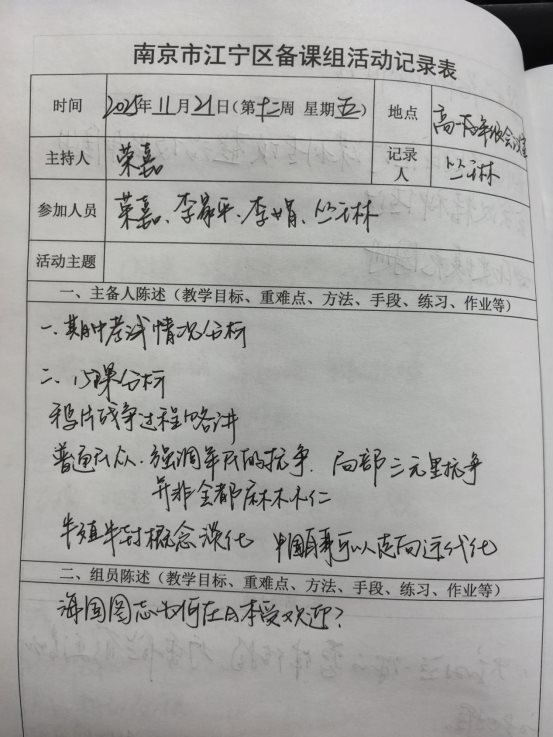 南京市江宁区备课组活动记录表
时间 2025年11月21日(第十二周 星期五) 地点 高一年级会议室
主持人 荣嘉 记录人 竺林
参加人员 荣嘉、李 平、李娟、竺林
活动主题
一、主备人陈述(教学目标、重难点、方法、手段、练习、作业等)
一、期中考试情况分析
二、15课分析
鸦片战争过程略讲
普通民众、强调军民的抗争、局部三元里抗争
并非全都麻木不仁
半殖半封概念淡化 中国 可以走向近代化
二、组员陈述(教学目标、重难点、方法、手段、练习、作业等)
海国图志为何在日本受欢迎?